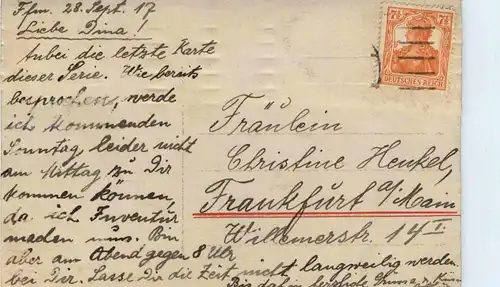 Ffm. 28. Sept. 17
Liebe Dina!
Anbei die letzte Karte
dieser Serie. Wie bereits
besprochen, werde
ich kommenden
Sonntag leider nicht
am Mittag zu Dir
kommen können,
da ich Inventur
machen muss. Bin
aber am Abend gegen 8 Uhr
bei Dir. Lasse Dir die Zeit nicht langweilig werden.
Bis dahin herzliche Grüsse &
7½ 7½
DEUTSCHES REICH
Fräulein
Christine Henkel,
Frankfurt a/Main
Willemerstr. 14 I